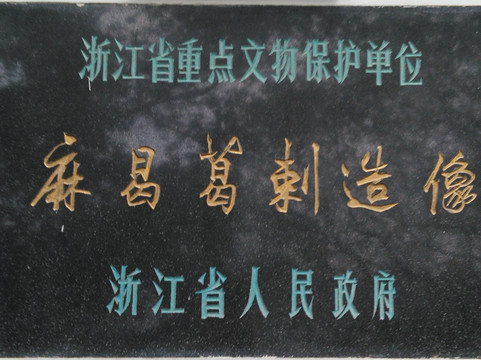 浙江省重点文物保护单位
麻曷葛剌造像
浙江省人民政府